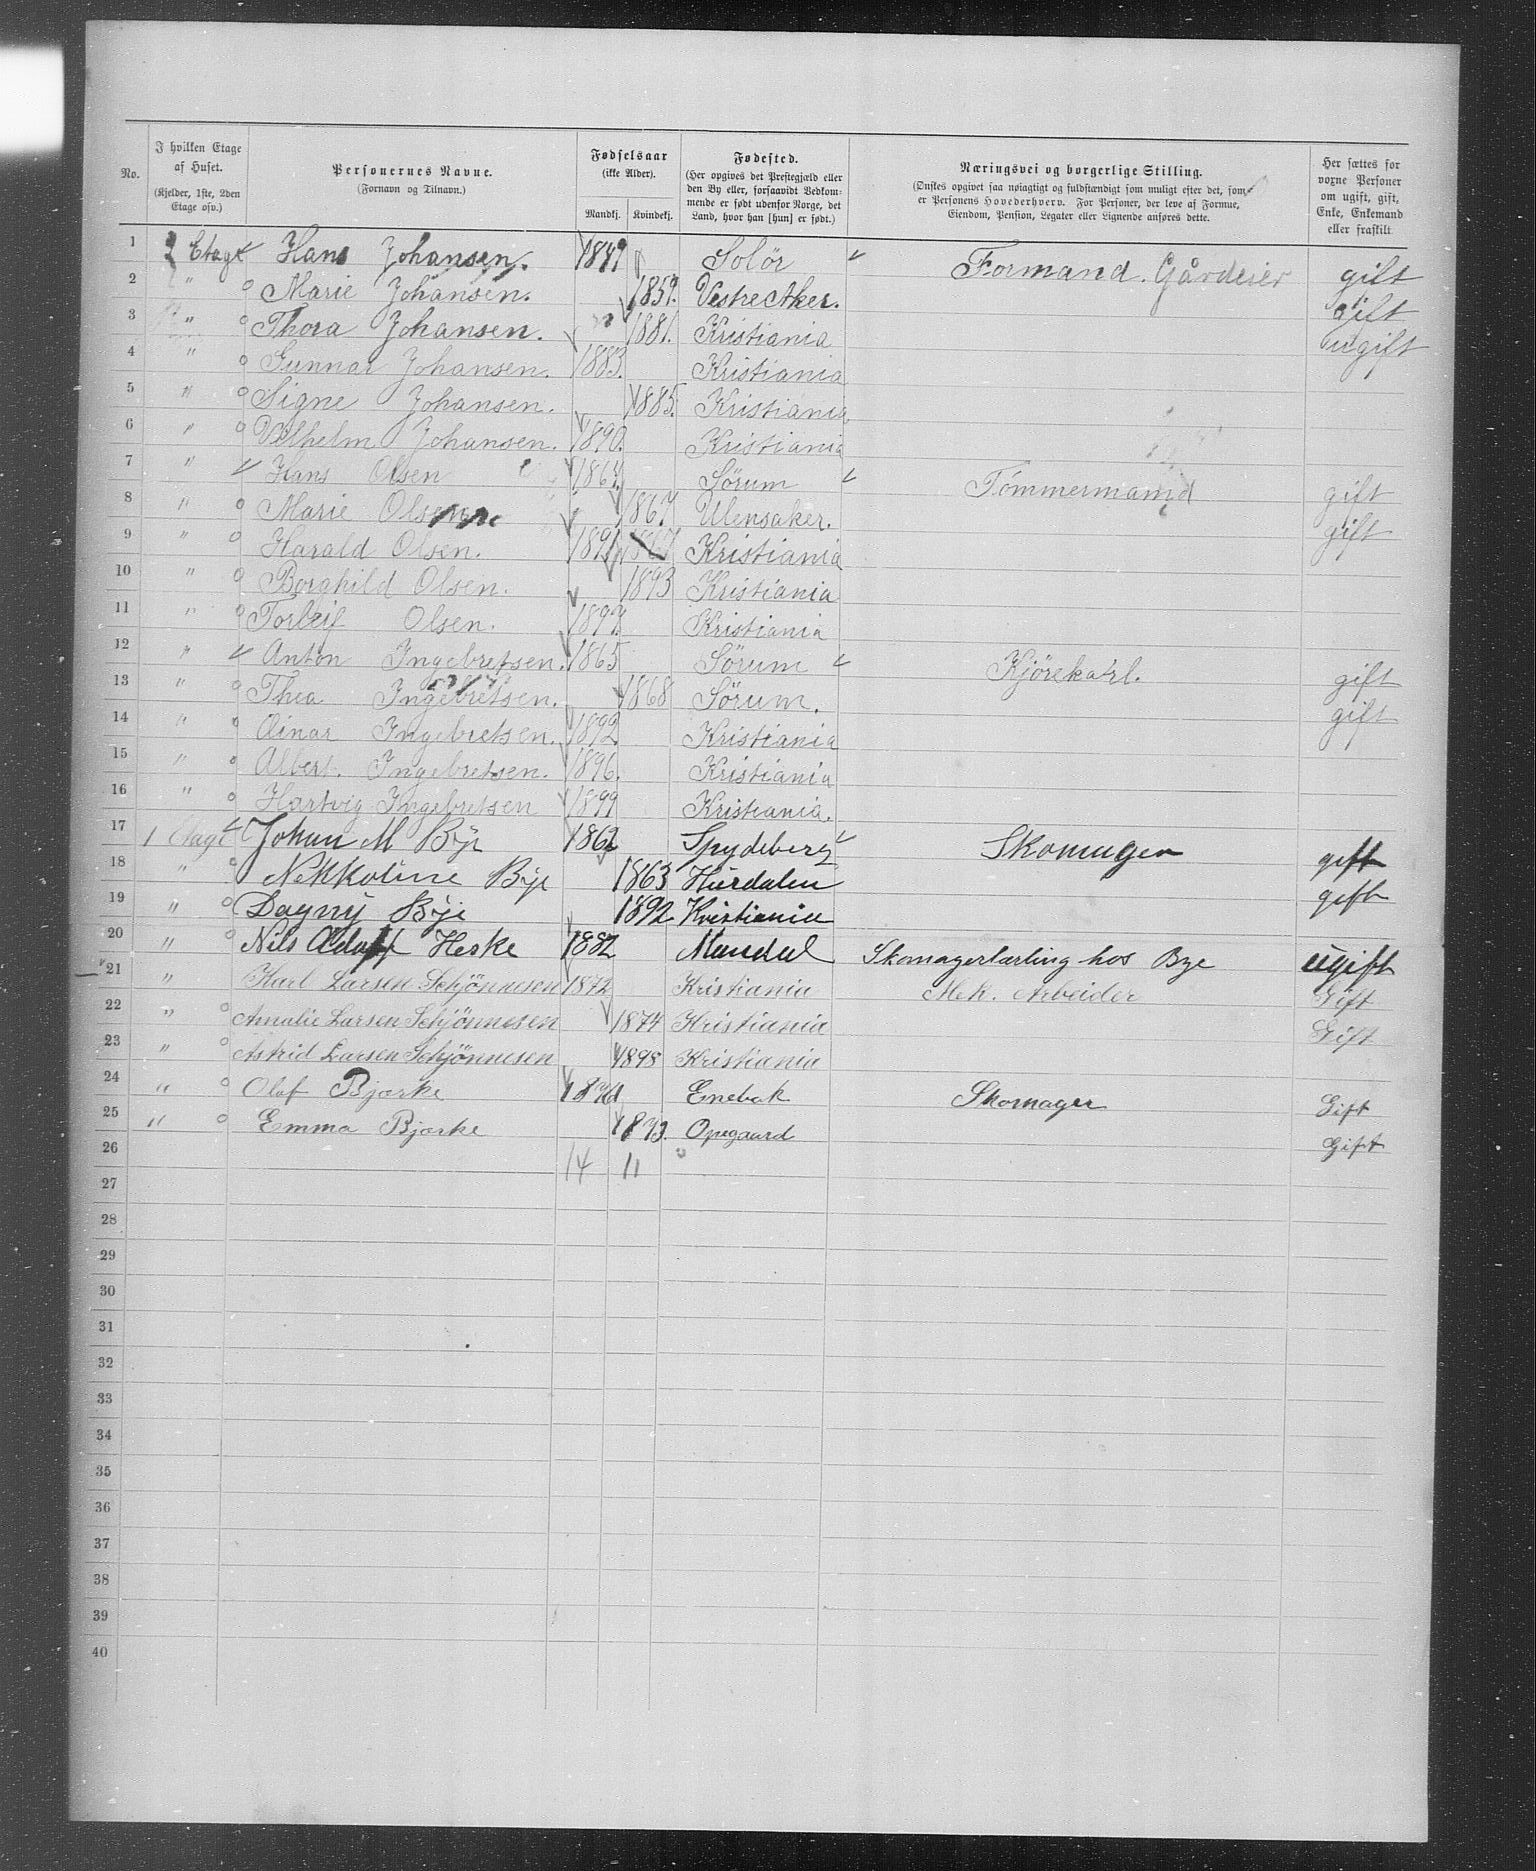 No. | I hvilken Etage af Huset. (Kjelder, 1ste, 2den Etage osv.) | Personernes Navne. (Fornavn og Tilnavn.) | Fødselsaar (ikke Alder). Mandkj. | Kvindekj. | Fødested. (Her opgives det Prestegjæld eller den By eller, forsaavidt Vedkommende er født udenfor Norge, det Land, hvor han [hun] er født.) | Næringsvei og borgerlige Stilling. (Ønskes opgivet saa nøiagtigt og fuldstændigt som muligt efter det, som er Personens Hovederhverv. For Personer, der leve af Formue, Eiendom, Pension, Legater eller Lignende anføres dette. | Her sættes for voxne Personer om ugift, gift, Enke, Enkemand eller fraskilt
1 2 Etage Hans Johansen. 1849 Solör Formand. Gårdeier gift
2 " Marie Johansen. 1859. Vestre Aker. gift
3 " Thora Johansen. 1881. Kristiania ugift
4 " Gunnar Johansen. 1883. Kristiania
5 " Signe Johansen. 1885. Kristiania
6 " Vilhelm Johansen. 1890. Kristiania
7 " Hans Olsen 1867. Sörum Tömmermand gift
8 " Marie Olsen 1867 Ulensaker. gift
9 " Harald Olsen. 1891 1867 Kristiania
10 " Borghild Olsen. 1893 Kristiania
11 " Torleif Olsen. 1897. Kristiania
12 " Anton Ingebretsen. 1865 Sörum Kjörekarl. gift
13 " Thea Ingebretsen. 1868 Sörum. gift
14 " Einar Ingebretsen. 1892 Kristiania
15 " Albert. Ingebretsen. 1896. Kristiania
16 " Hartvig Ingebretsen 1899 Kristiania.
17 1 Etage Johan M Bye 1862 Spydeberg Skomager gift
18 " Nikkoline Bye 1863 Hurdalen gift
19 " Dagny Bye 1892 Kristiania
20 " Nils Adolf Heske 1882 Mandal Skomagerlærling hos Bye ugift
21 " Karl Larsen Schjönnesen 1872 Kristiania Mek. Arbeider Gift
22 " Amalie Larsen Schjönnesen 1874 Kristiania Gift
23 " Astrid Larsen Schjönnesen 1898 Kristiania
24 " Olaf Bjørke Enebak Skomager Gift
25 " Emma Bjørke 1873. Opegaard Gift
26 14 11
27
28
29
30
31
32
33
34
35
36
37
38
39
40